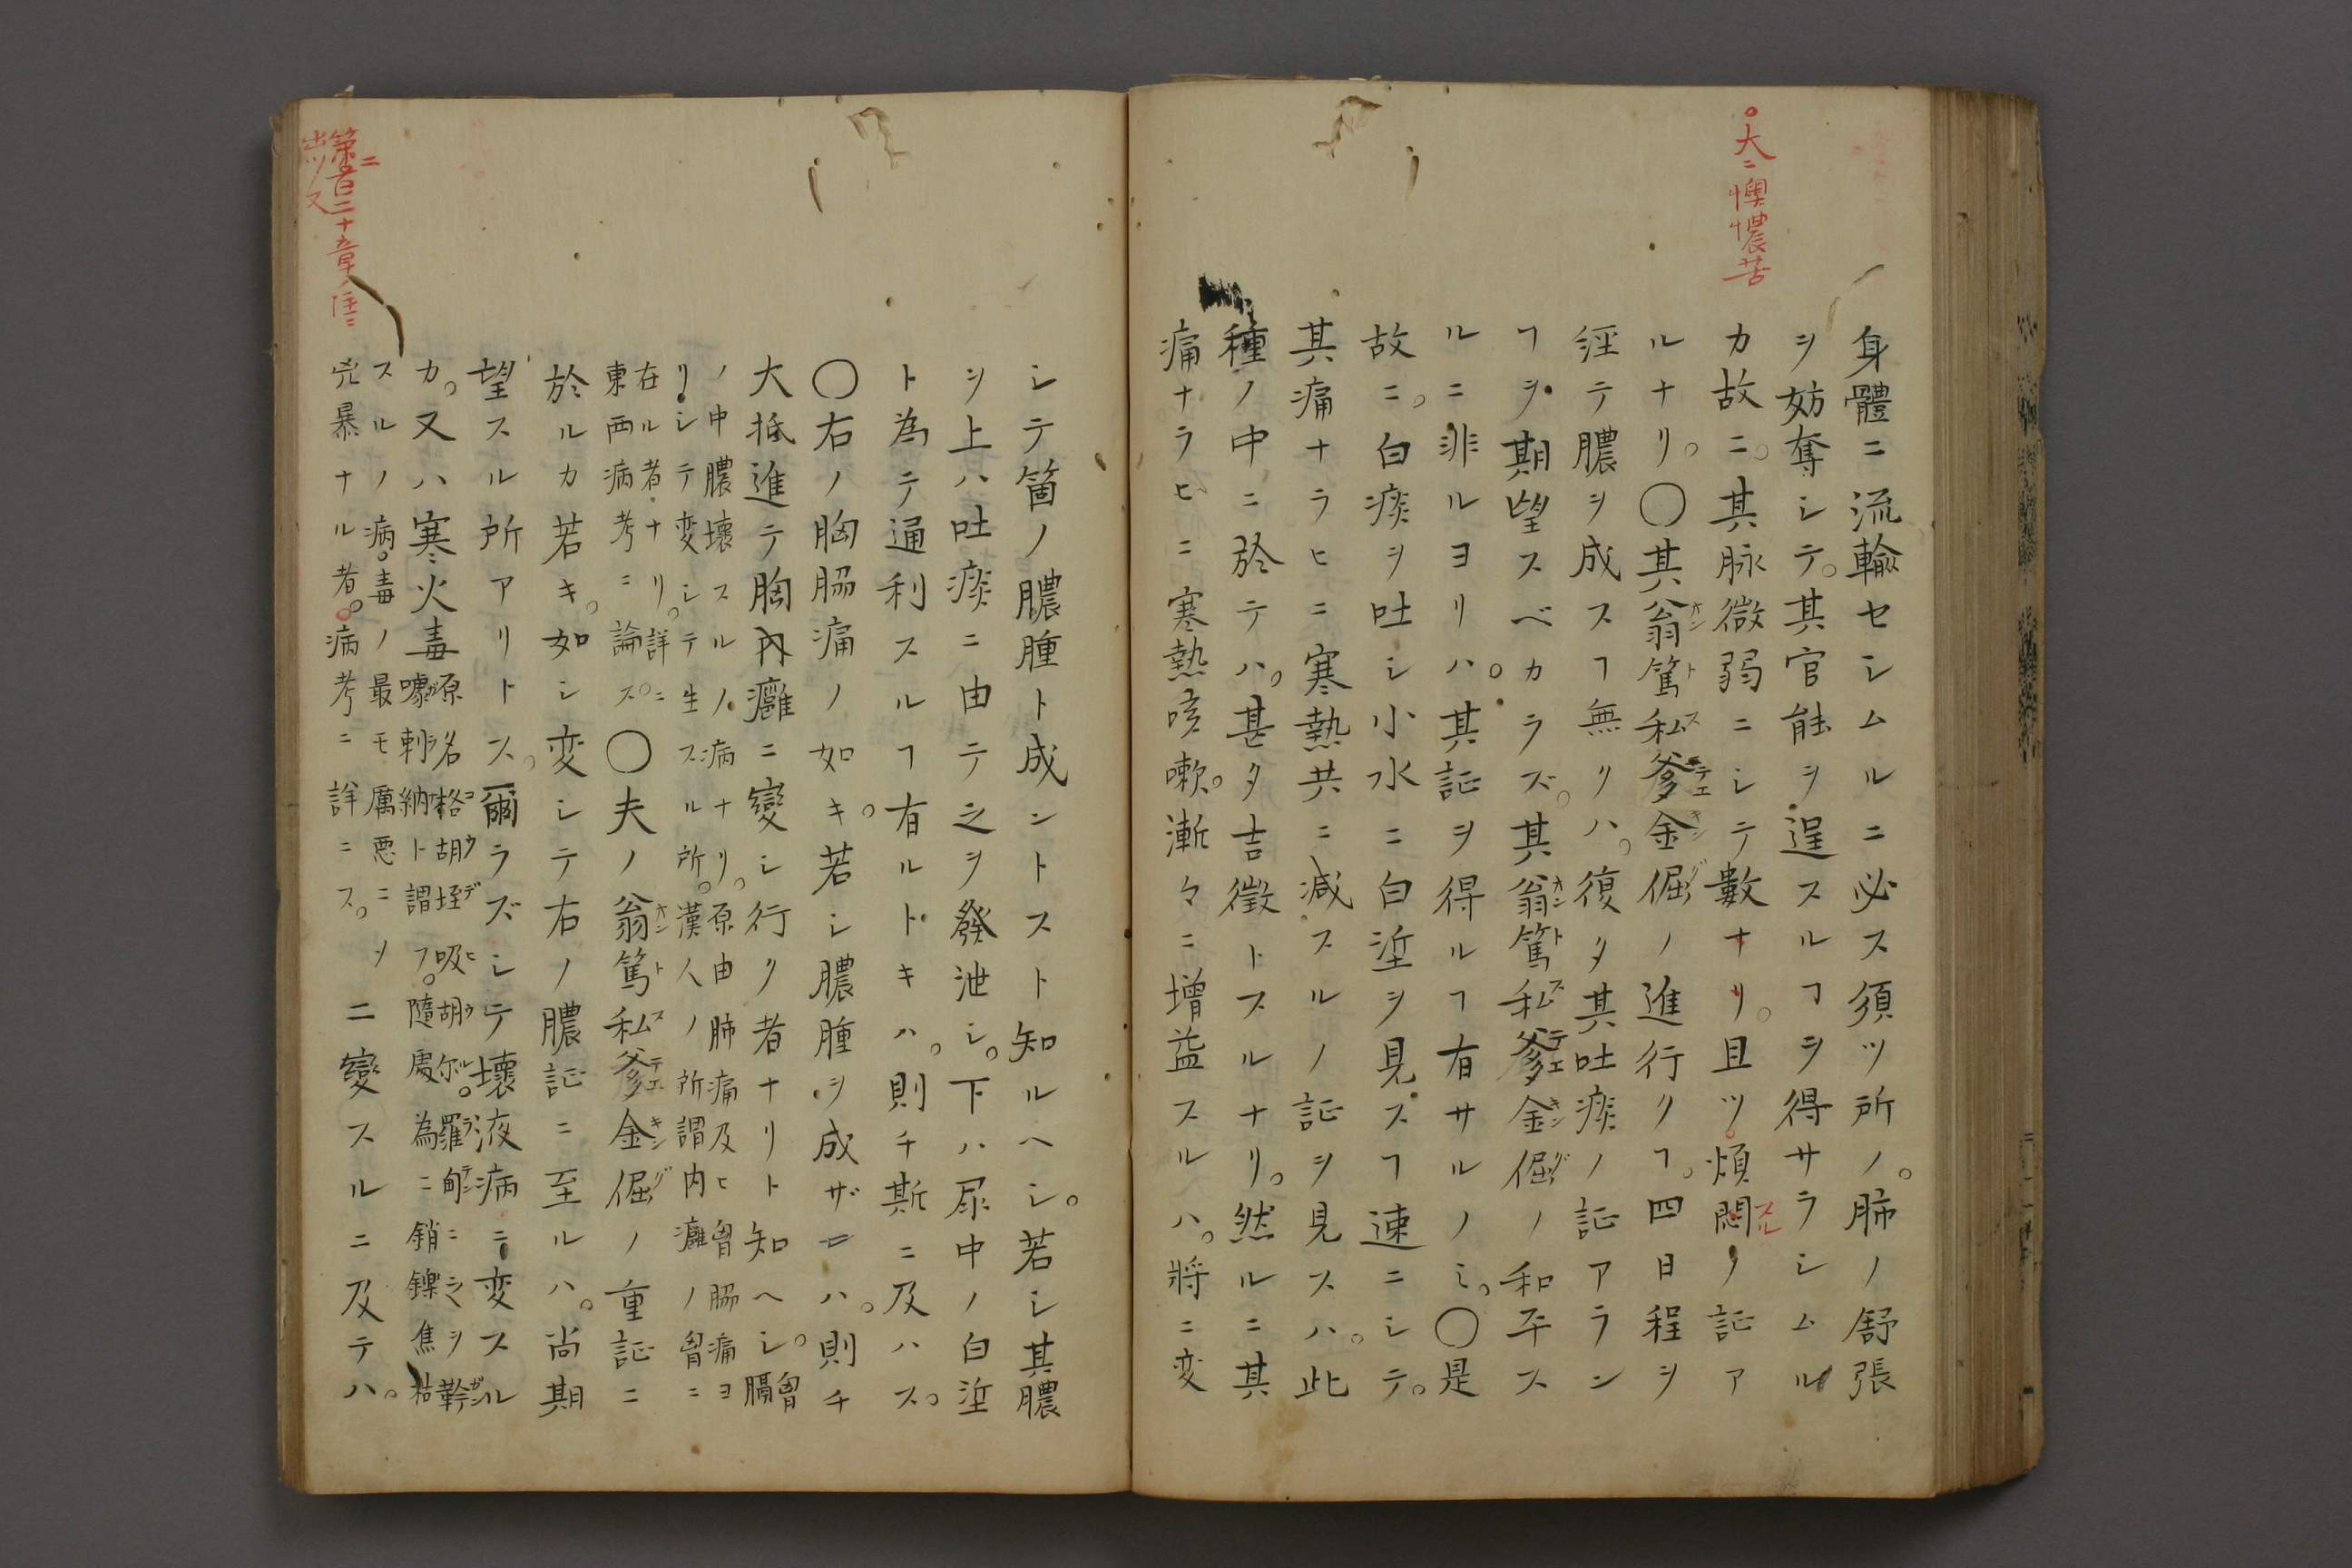 大ニ懊憹苦
身體ニ流輸セシムルニ必ス須ツ所ノ。肺ノ舒張
ヲ妨奪シテ。其官能ヲ逞スルヿヲ得サラシムル
カ故ニ。其脉微弱ニシテ數ナリ。且ツ。煩悶スルノ証ア
ルナリ。〇其翁篤私爹金倔ノ進行クヿ。四日程ヲ
経テ膿ヲ成スヿ無クハ。復タ其吐痰ノ証アラン
ヿヲ期望スベカラズ。其翁篤私爹金倔ノ和平ス
ルニ非ルヨリハ。其証ヲ得ルヿ有サルノミ。〇是
故ニ。白痰ヲ吐シ小水ニ白垽ヲ見スヿ速ニシテ。
其痛ナラヒニ寒熱共ニ減スルノ証ヲ見スハ。此
種ノ中ニ於テハ。甚タ吉徴トスルナリ。然ルニ其
痛ナラヒニ寒熱咳嗽。漸々ニ増益スルハ。将ニ変
シテ箇ノ膿腫ト成ントスト知ルヘシ。若シ其膿
ヲ上ハ吐痰ニ由テ之ヲ發泄シ。下ハ尿中ノ白垽
ト為テ通利スルヿ有ルトキハ。則チ斯ニ及ハス。
〇右ノ胸脇痛ノ如キ。若シ膿腫ヲ成ザレハ。則チ
大抵進テ胸内癰ニ變シ行ク者ナリト知ヘシ。胷膈
ノ中膿壊スルノ病ナリ。原由肺痛及ヒ胷脇痛ヨ
リシテ変シテ生スル所。漢人ノ所謂内癰ノ胷ニ
在ル者ナリ。詳ニ
東西病考ニ論ス。〇夫ノ翁篤私爹金倔ノ重証ニ
於ルカ若キ。如シ変シテ右ノ膿証ニ至ルハ。尚期
望スル所アリトス。爾ラズシテ壊液病ニ変スル
カ。又ハ寒火毒原名格胡垤吸胡尓。羅甸ニシヲ鞥
嚎剌納ト謂フ。随處為ニ銷鑠焦枯
スルノ病。毒ノ最モ厲悪ニシ
兇暴ナル者。病考ニ詳ニス。ニ變スルニ及テハ。
第二百二十章ノ注ニ
出ツ又